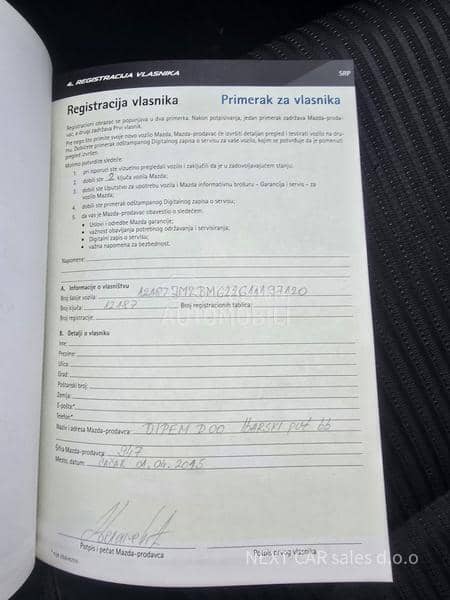 4. REGISTRACIJA VLASNIKA
SRP
Registracija vlasnika
Primerak za vlasnika
Registracioni obrazac se popunjava u dva primerka. Nakon potpisivanja, jedan primerak zadržava Mazda-proda-
vac, a drugi zadržava Prvi vlasnik.
Pre nego što primite svoje novo vozilo Mazda, Mazda-prodavac će izvršiti detaljan pregled i testirati vozilo na dru-
mu. Dobićete primerak odštampanog Digitalnog zapisa o servisu za vaše vozilo, kojim se potvrđuje da je pomenuti
pregled izvršen.
Molimo potvrdite sledeće:
1. pri isporuci ste vizuelno pregledali vozilo i zaključili da je u zadovoljavajućem stanju.
2. dobili ste 2 ključa vozila Mazda;
3. dobili ste Uputstvo za upotrebu vozila i Mazda informativnu brošuru - Garancija i servis - za
vozilo Mazda;
4. dobili ste primerak odštampanog Digitalnog zapisa o servisu;
5. da vas je Mazda-prodavac obavestio o sledećem:
• Uslovi i odredbe Mazda garancije;
• važnost obavljanja potrebnog održavanja i servisiranja;
• Digitalni zapis o servisu;
• važna napomena za bezbednost.
Napomene:
A. Informacije o vlasništvu
Broj šasije vozila:
Broj ključa: 12187
Broj registracionih tablica:
Broj registracije:
AUTOMOBILI
B. Detalji o vlasniku
Ime:
Prezime:
Ulica:
Grad:
Poštanski broj:
Zemlja:
E-pošta*:
Telefon*:
Naziv i adresa Mazda-prodavca DIPEM DOO put bb
Šifra Mazda-prodavca: 947
Mesto, datum: ČAČAK 01.04.2015
Potpis i pečat Mazda-prodavca
Potpis prvog vlasnika
* nije obavezno
NEXT CAR sales d.o.o